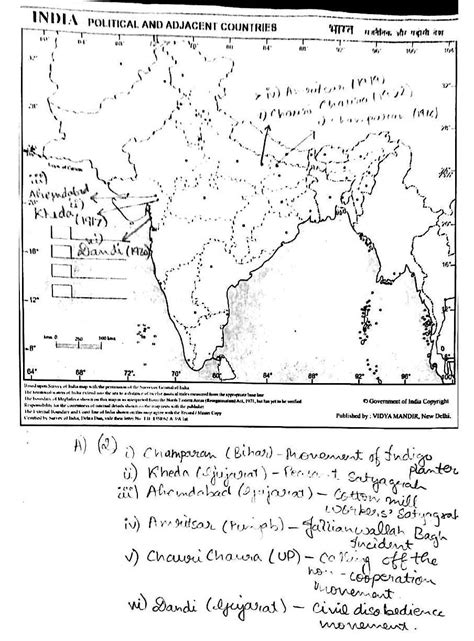 INDIA POLITICAL AND ADJACENT COUNTRIES
भारत राजनैतिक और पड़ोसी देश
iv) Amritsar (1919)
v) Chauri Chaura (1922)
i) Champaran (1916)
iii)
Ahemdabad
ii)
Kheda (1917)
vi)
Dandi (1930)
km 0 250 500 km
Based upon Survey of India map with the permission of the Surveyor General of India
© Government of India Copyright
Published by : VIDYA MANDIR, New Delhi.
A) (2) i) Champaran (Bihar) - Movement of Indigo
planter
ii) Kheda (Gujarat) - Peasant Satyagrah
iii) Ahemdabad (Gujarat) - Cotton mill
workers' Satyagrah
iv) Amritsar (Punjab) - Jallianwallah Bagh
Incident
v) Chauri Chaura (UP) - Calling off the
non-cooperation
movement.
vi) Dandi (Gujarat) - Civil disobedience
movement.